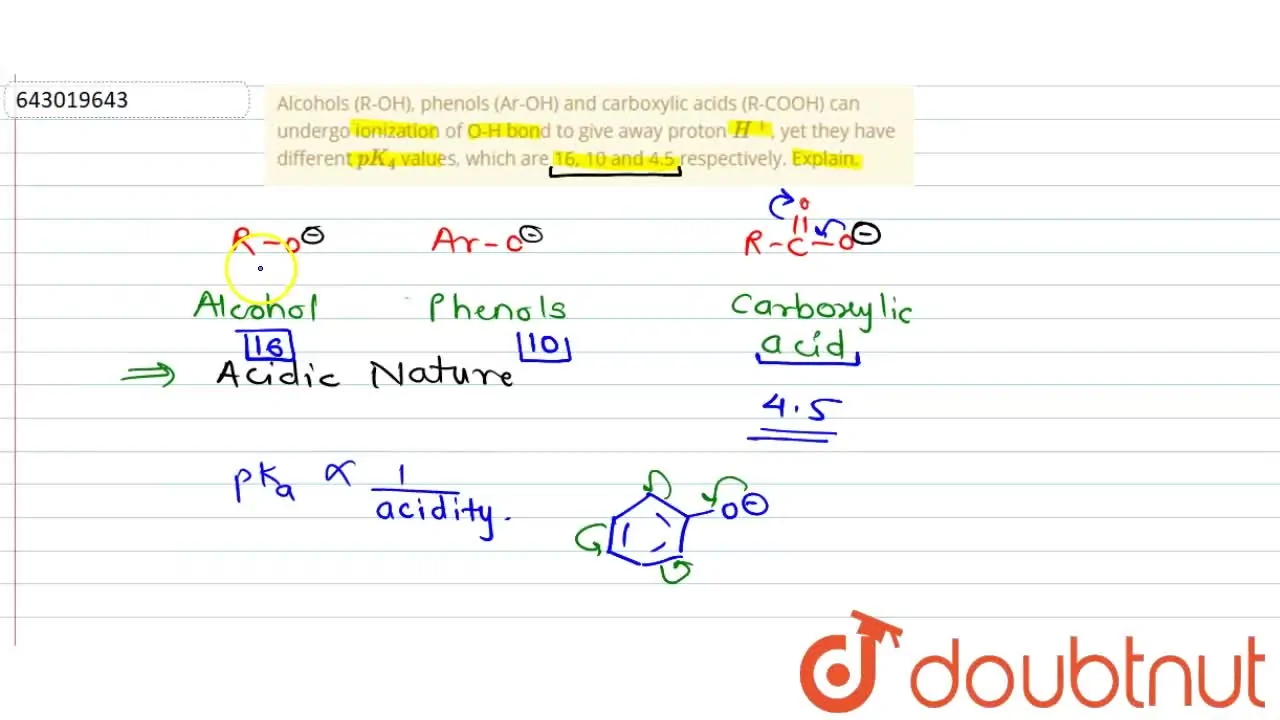 643019643
Alcohols (R-OH), phenols (Ar-OH) and carboxylic acids (R-COOH) can
undergo ionization of O-H bond to give away proton H⁺, yet they have
different pK₄ values, which are 16, 10 and 4.5 respectively. Explain.
R-O⊖ Ar-O⊖ R-C-O⊖
O
Alcohol Phenols Carboxylic
acid
16 10
⇒ Acidic Nature
4.5
pKa ∝ 1
acidity.
O⊖
doubtnut